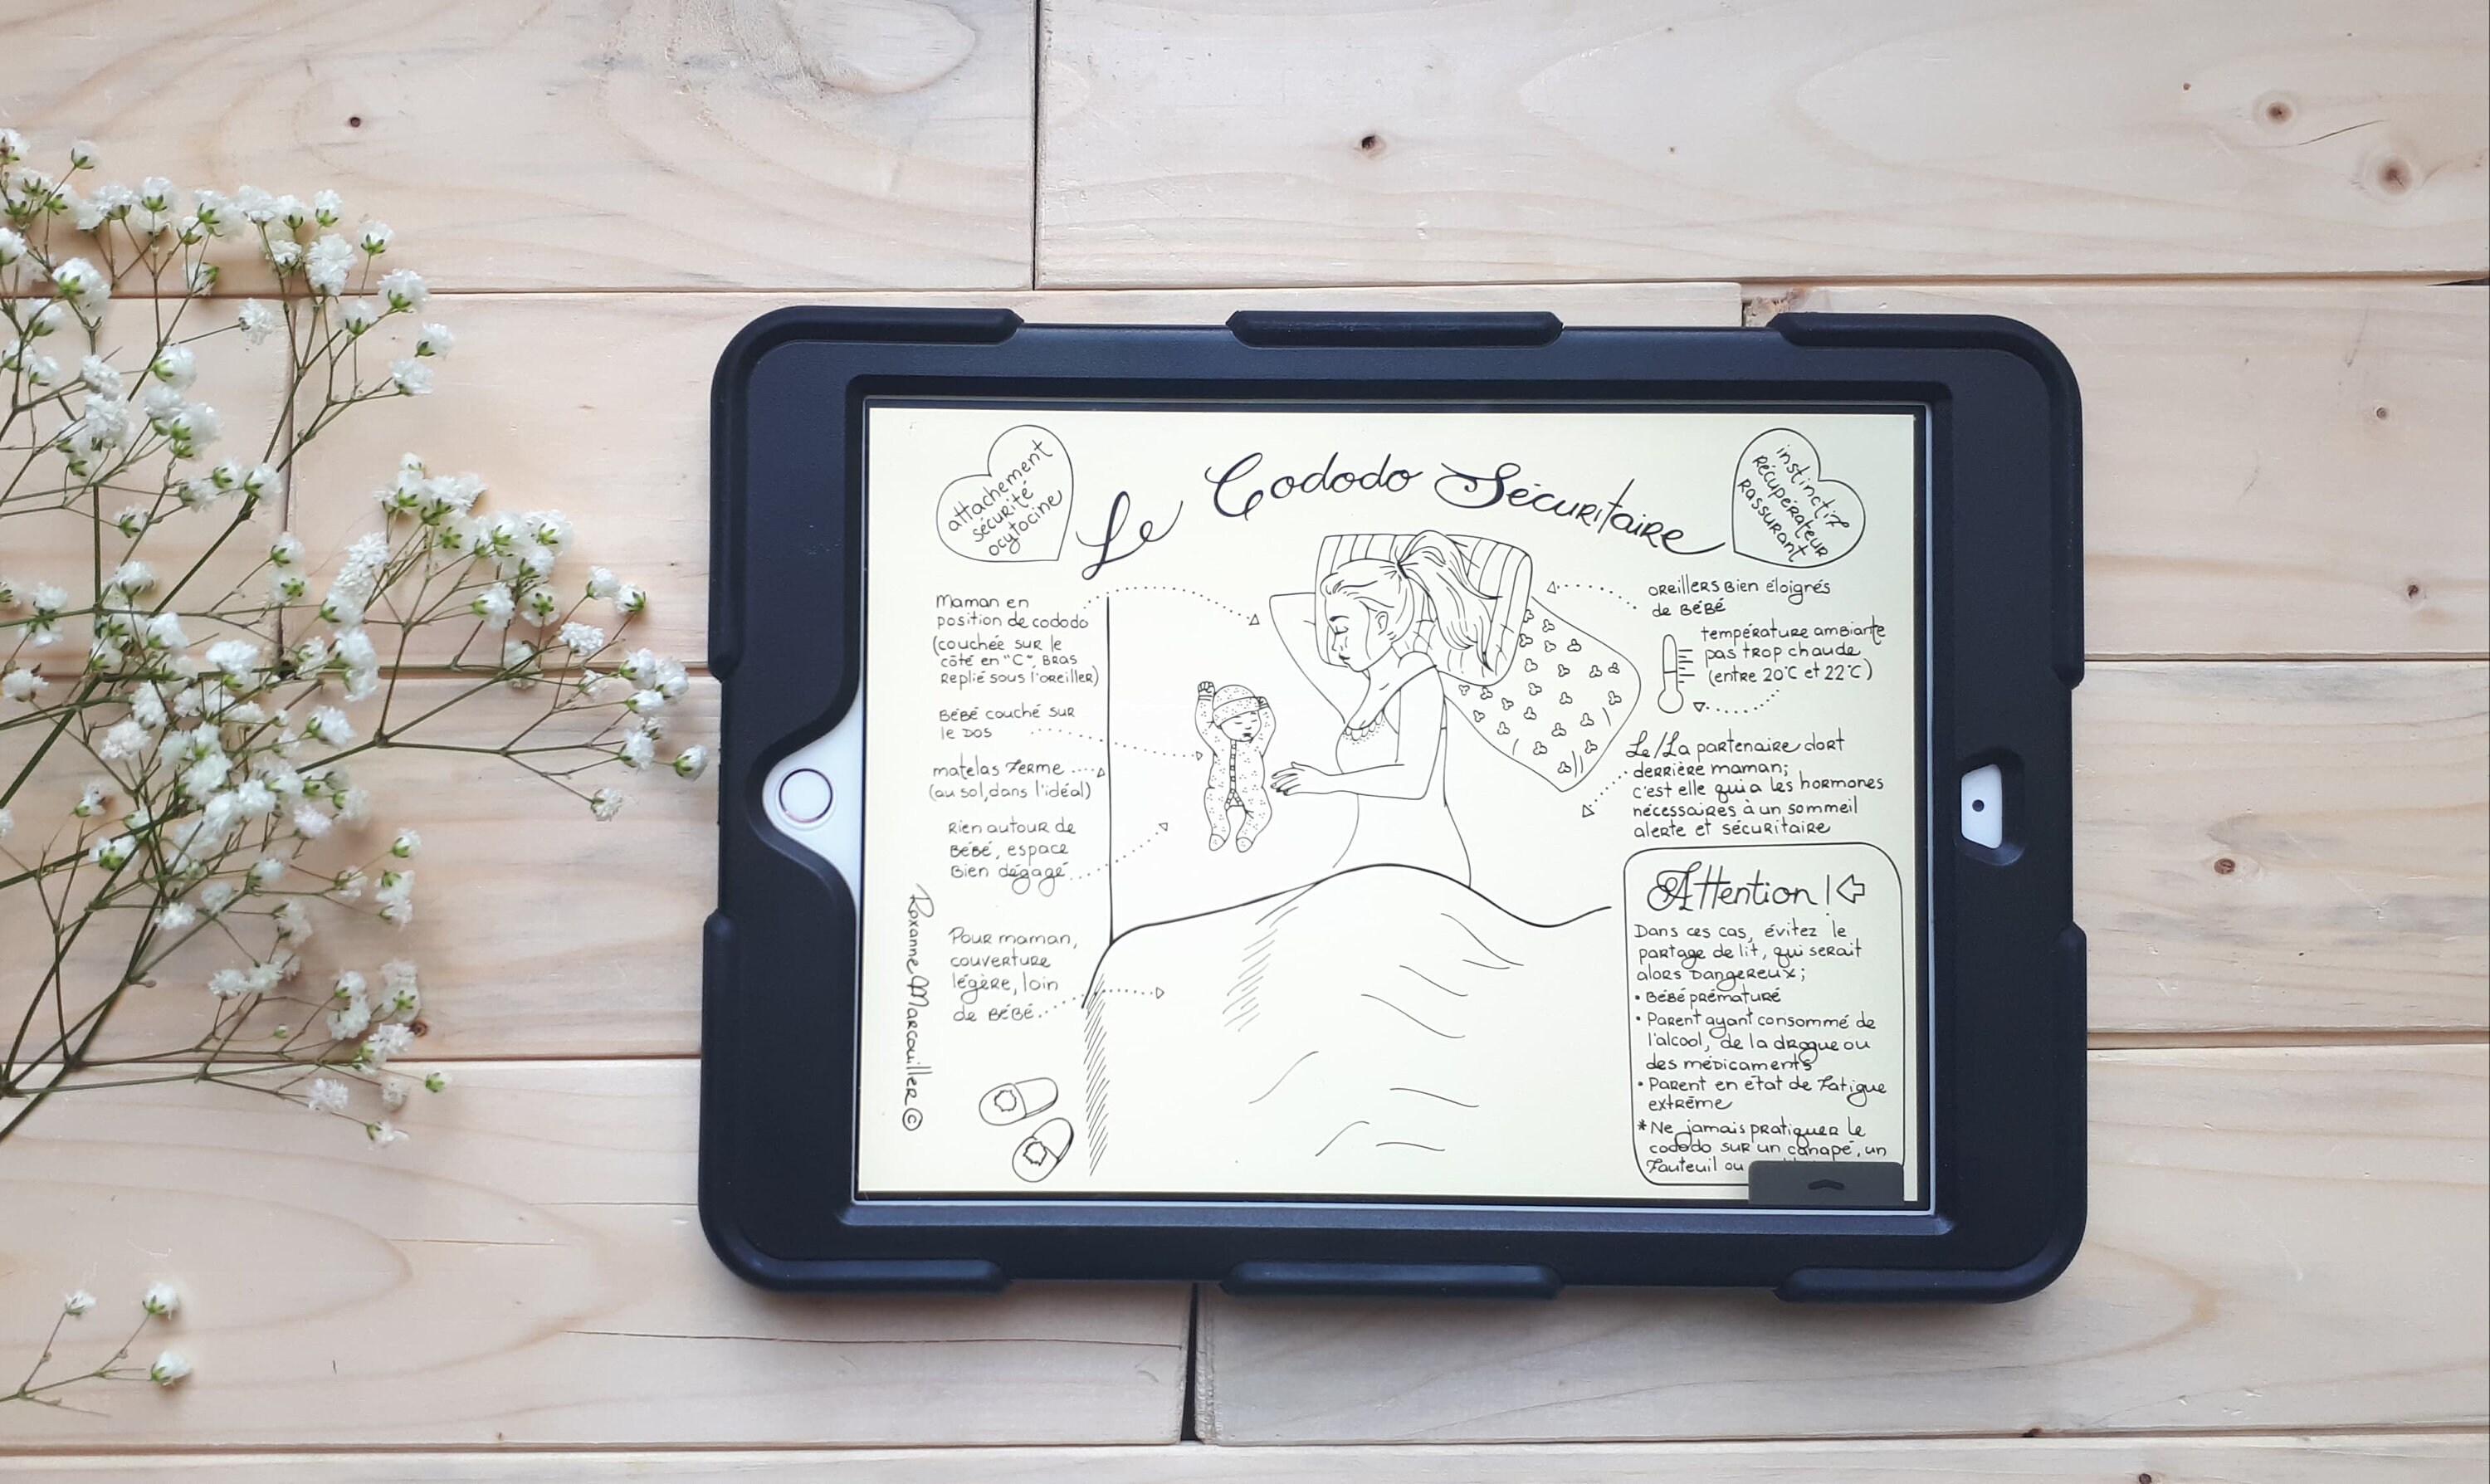 attachement
sécurité
ocytocine
Le Cododo Sécuritaire
instinctif
récupérateur
rassurant
Maman en
position de cododo
(couchée sur le
côté en "C", bras
replié sous l'oreiller)
Bébé couché sur
le dos
matelas ferme
(au sol, dans l'idéal)
Rien autour de
Bébé, espace
Bien dégagé
Pour maman,
couverture
légère, loin
de Bébé
Roxanne Marcouiller ©
oreillers Bien éloignés
de Bébé
température ambiante
pas trop chaude
(entre 20°C et 22°C)
Le/La partenaire dort
derrière maman;
c'est elle qui a les hormones
nécessaires à un sommeil
alerte et sécuritaire
Attention!
Dans ces cas, évitez le
partage de lit, qui serait
alors dangereux;
• Bébé prématuré
• Parent ayant consommé de
l'alcool, de la drogue ou
des médicaments
• Parent en état de fatigue
extrême
*Ne jamais pratiquer le
cododo sur un canapé, un
fauteuil ou